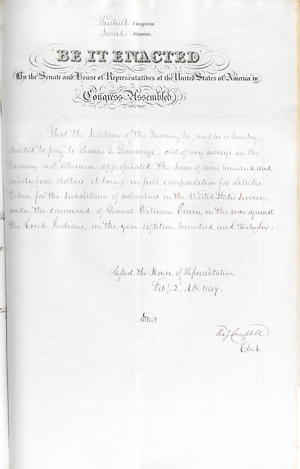 Thirtieth Congress
Second Session
BE IT ENACTED
By the Senate and House of Representatives of the United States of America in
Congress Assembled
That the Secretary of the Treasury be, and he is hereby,
directed to pay to Thomas T. out of any money in the
treasury not otherwise appropriated the sum of one hundred and
ninety four dollars, it being in full compensation for articles
taken for the subsistence of volunteers in the United States Service,
under the command of General William in the war against
the Creek Indians, in the year eighteen hundred and thirty six.
Passed the House of Representatives
Feb 2d A.D. 1849.
Attest
Th. J. Campbell
Clerk